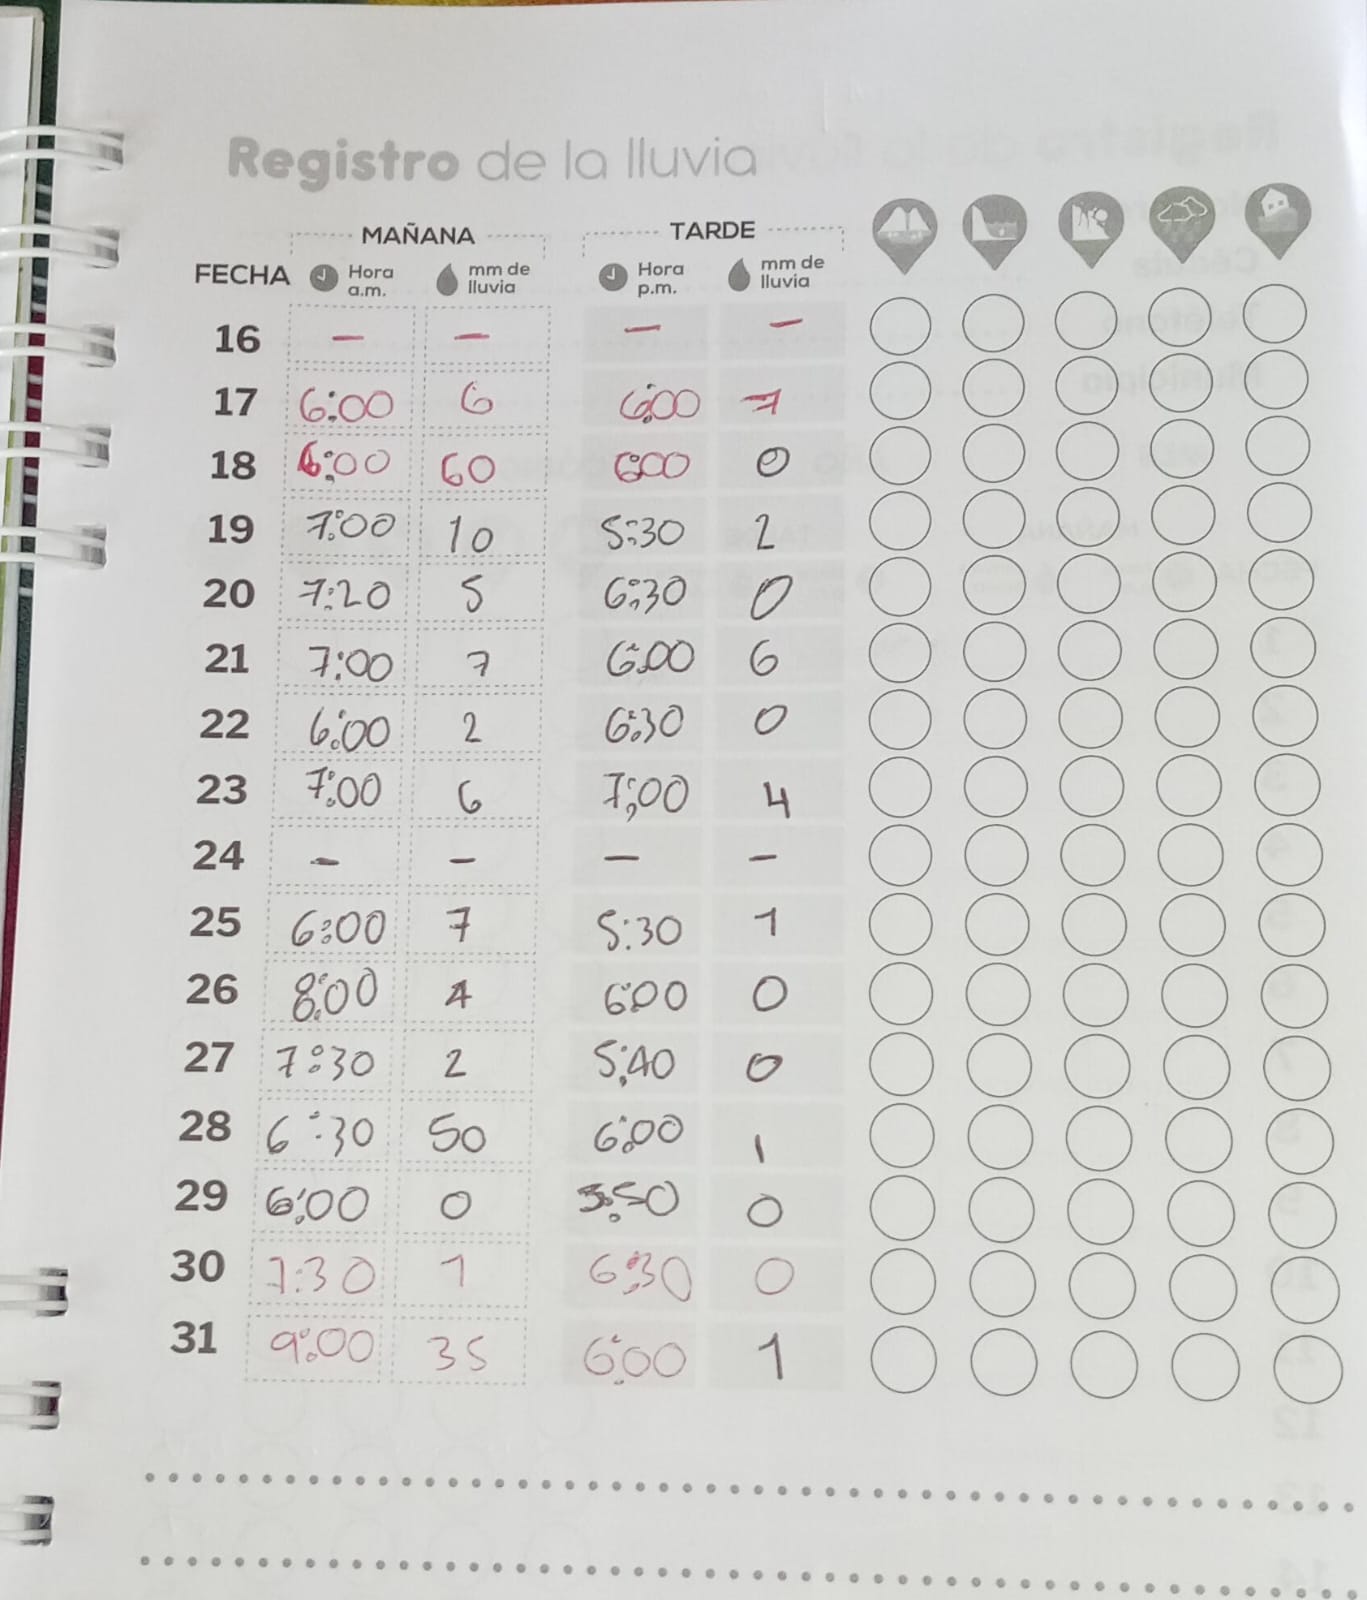 Registro de la lluvia
MAÑANA TARDE
FECHA Hora a.m. mm de lluvia Hora p.m. mm de lluvia
16 – – – –
17 6:00 6 6:00 7
18 6:00 60 6:00 0
19 7:00 10 5:30 2
20 7:20 5 6:30 0
21 7:00 7 6:00 6
22 6:00 2 6:30 0
23 7:00 6 7:00 4
24 – – – –
25 6:00 7 5:30 1
26 8:00 4 6:00 0
27 7:30 2 5:40 0
28 6:30 50 6:00 1
29 6:00 0 3:50 0
30 7:30 1 6:30 0
31 9:00 35 6:00 1